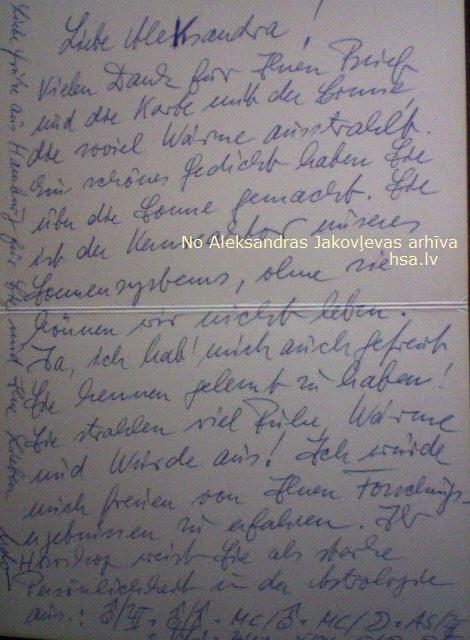 Liebe Aleksandra!
Vielen Dank für Ihren Brief
und die Karte mit der Sonne,
die soviel Wärme ausstrahlt.
Ein schönes Gedicht haben Sie
über die Sonne gemacht. Sie
ist der Kernreaktor unseres
No Aleksandras Jakovļevas arhīva
hsa.lv
Sonnensystems, ohne sie
können wir nicht leben.
Ja, ich hab' mich auch gefreut
Sie kennen gelernt zu haben!
Sie strahlen viel Ruhe, Wärme
und Würde aus! Ich würde
mich freuen von Ihnen Forschungs-
ergebnissen zu erfahren. Ihr
Horoskop weist Sie als starke
Persönlichkeit in der Astrologie
aus.:
Liebe Grüße aus Hamburg für Sie und Ihre Lieben